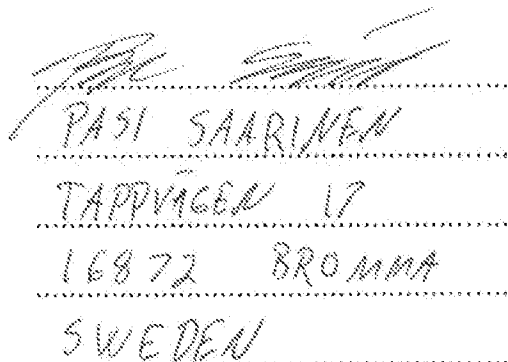 PASI SAARINEN
TAPPVÄGEN 17
16872 BROMMA
SWEDEN